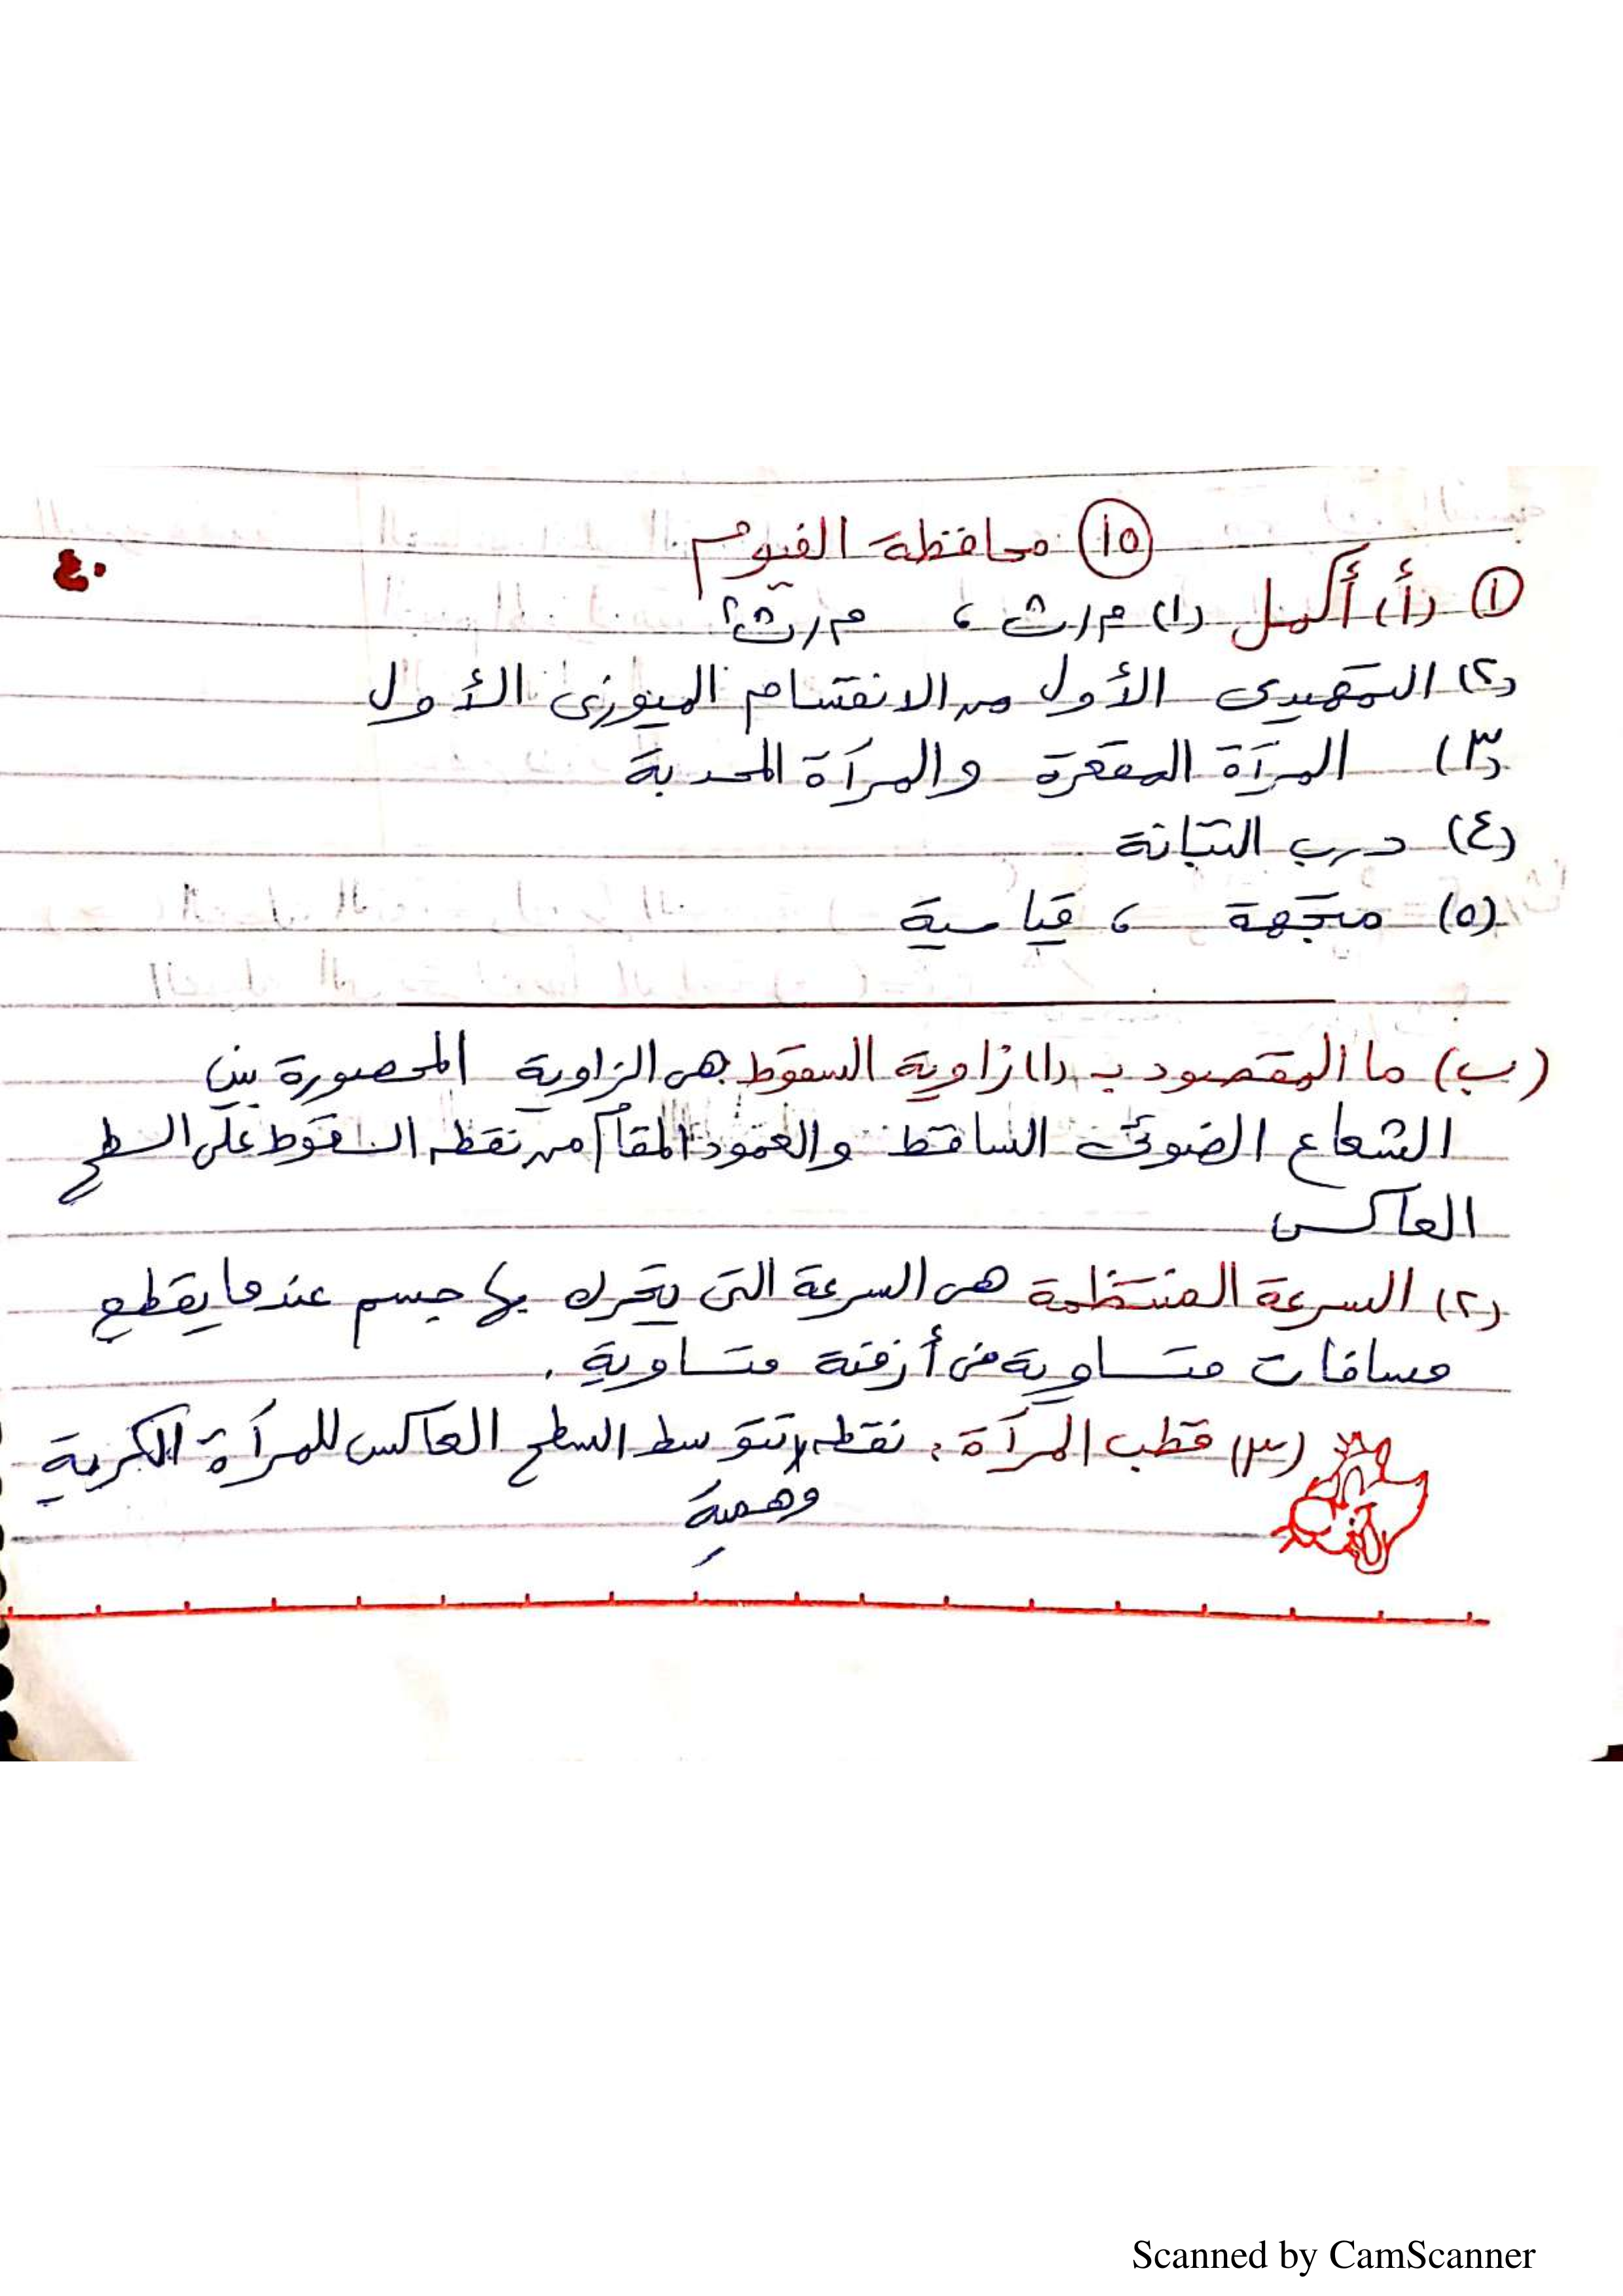 ١٥ محافظة الفيوم
٤٠
١ (أ) أكمل (١) م/ث ، م/ث٢
(٢) التمهيدى الأول من الانقسام الميوزى الأول
(٣) المرآة المقعرة والمرآة المحدبة
(٤) درب التبانة
(٥) متجهة ، قياسية
(ب) ما المقصود بـ (١) زاوية السقوط هى الزاوية المحصورة بين
الشعاع الضوئى الساقط والعمود المقام من نقطه السقوط على السطح
العاكس
(٢) السرعة المنتظمة هى السرعة التى يتحرك بها جسم عندما يقطع
مسافات متساوية فى أزمنة متساوية .
(٣) قطب المرآة : نقطه تتوسط السطح العاكس للمرآة الكرية
وهمية
Scanned by CamScanner